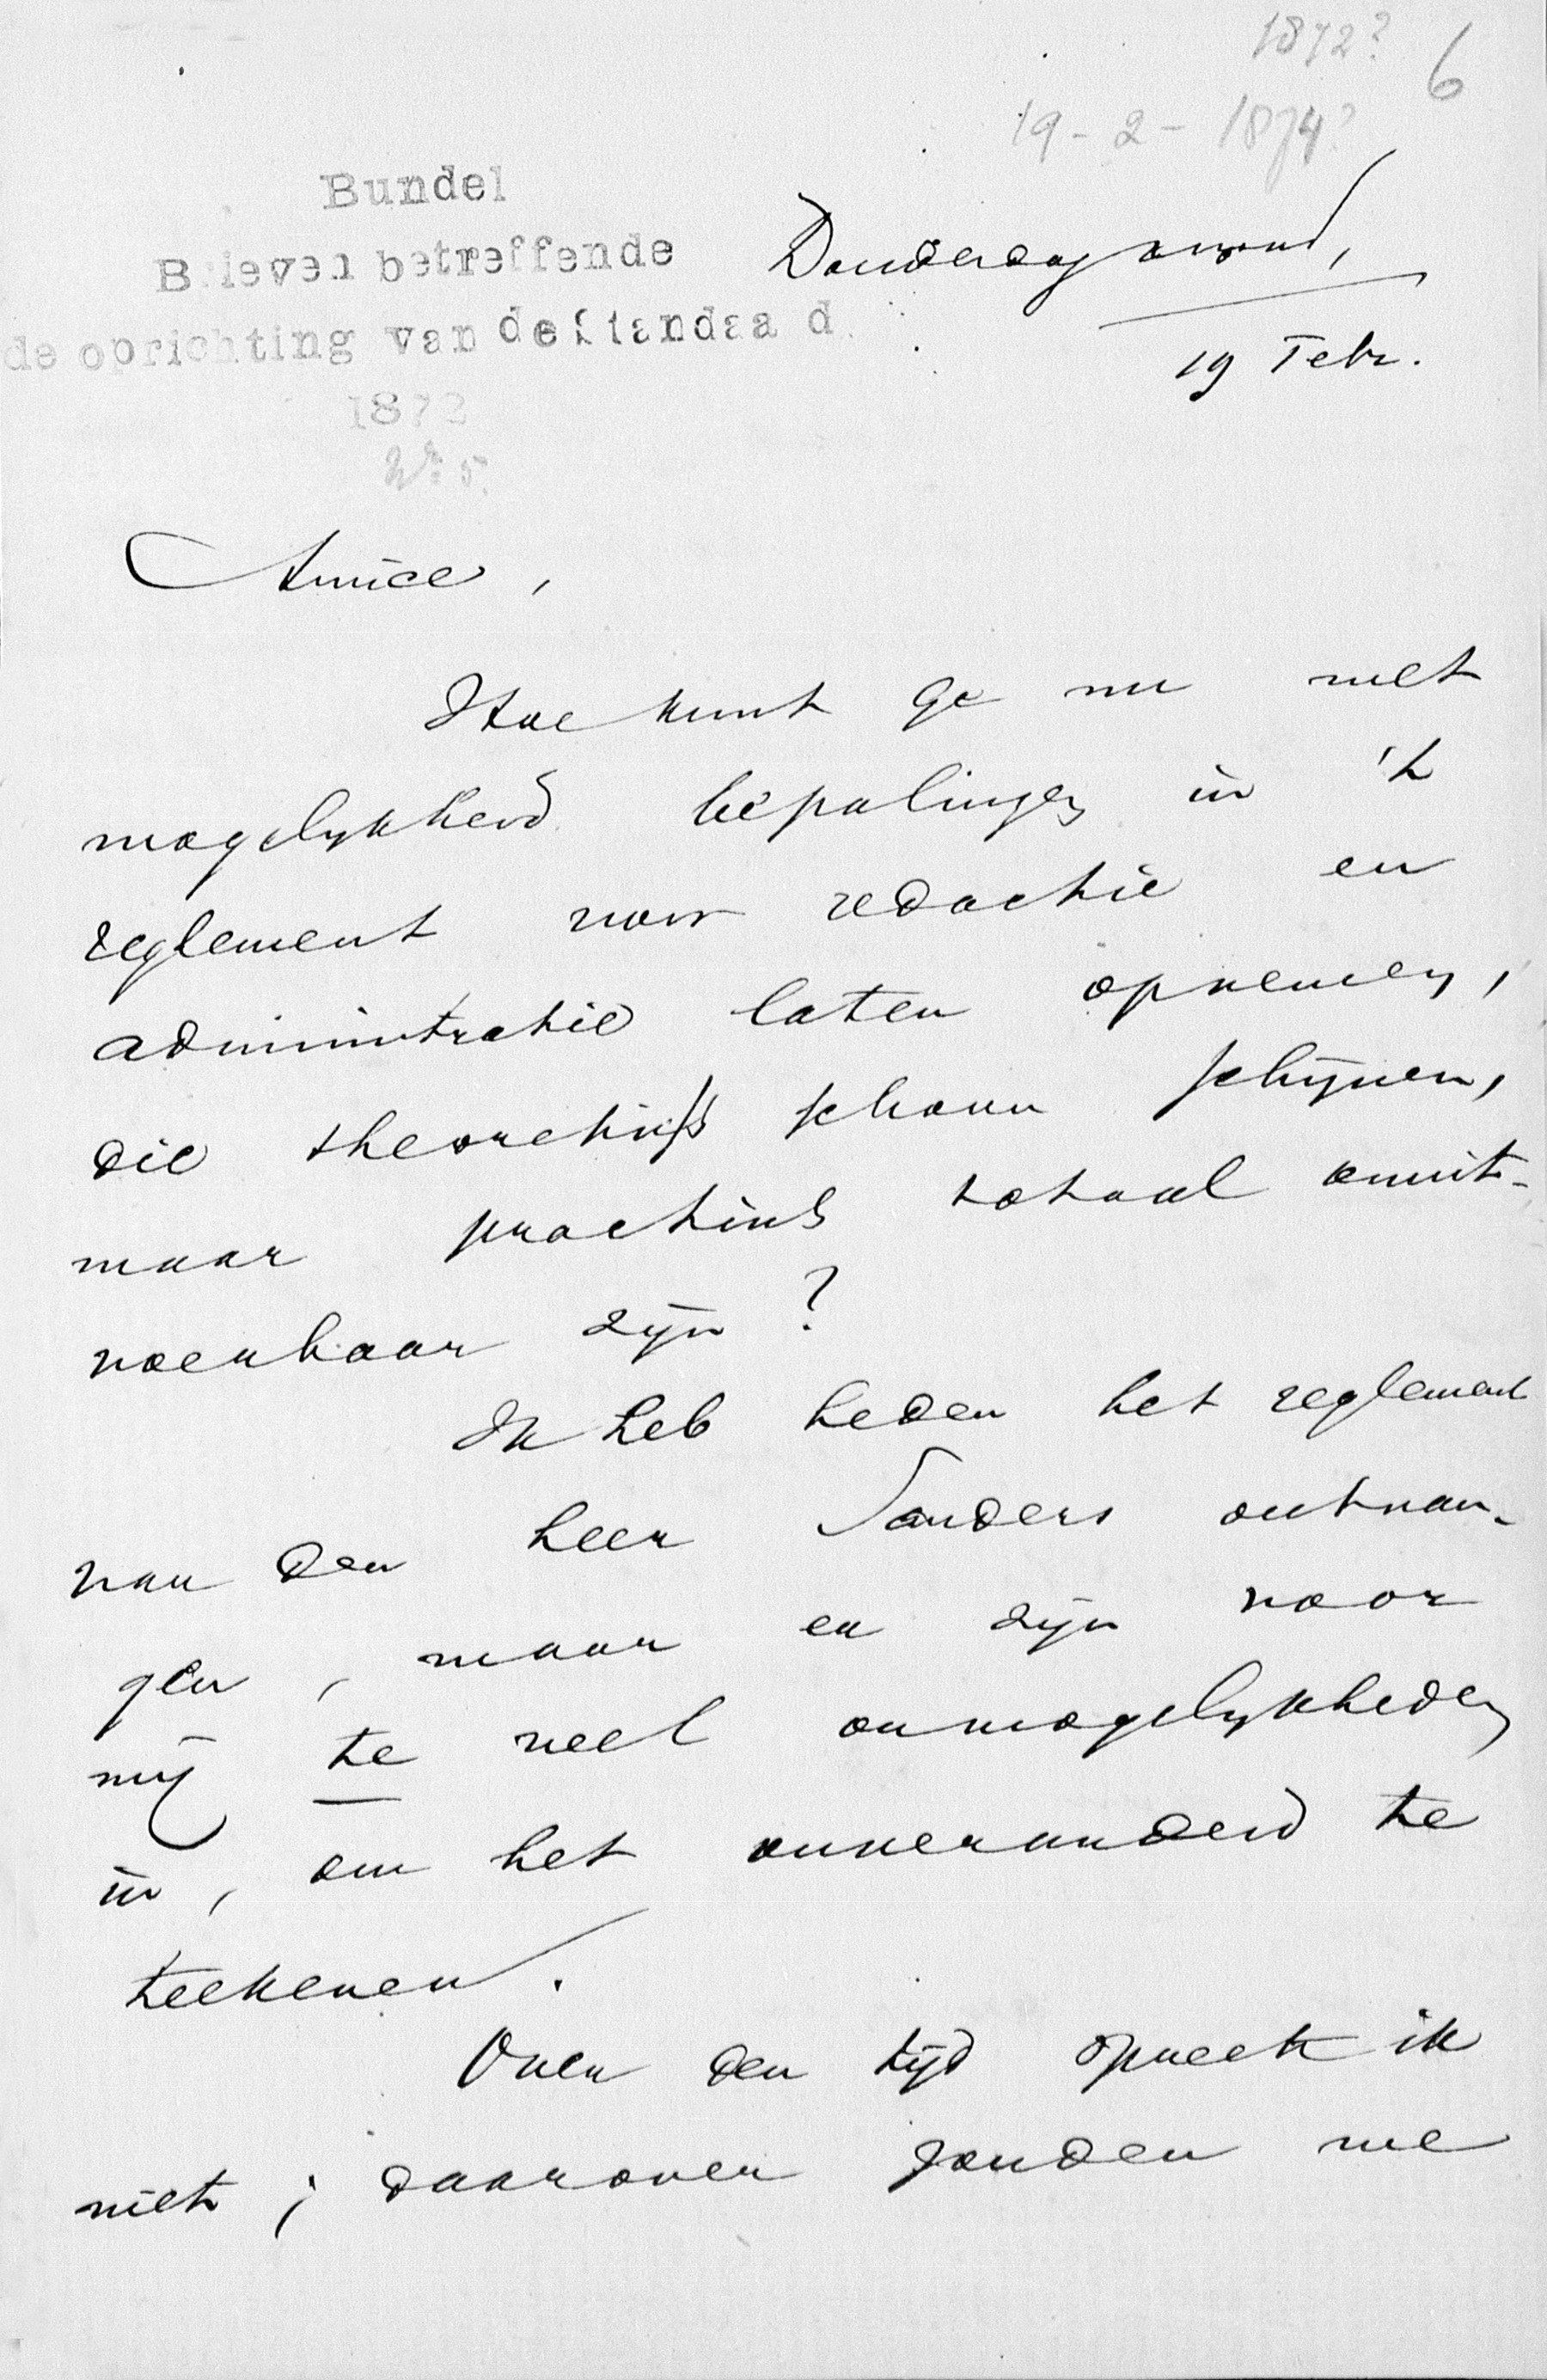 1872?
6
19-2-1874?
Bundel
Brieven betreffende
de oprichting van de Standaard.
1872
No. 5.
Donderdag avond,
19 Febr.
Amice,
Hoe kunt ge nu met
mogelykheid bepalingen in 't
reglement voor redactie en
administratie laten opnemen,
die theoretisch schoon schijnen,
maar practisch totaal onuit-
voerbaar zijn?
Ik heb heden het reglement
van den heer Sanders ontvan-
gen, maar er zijn voor
mij te veel onmogelykheden
in, om het onveranderd te
teekenen.
Over den tijd spreek ik
niet; daarover zouden we